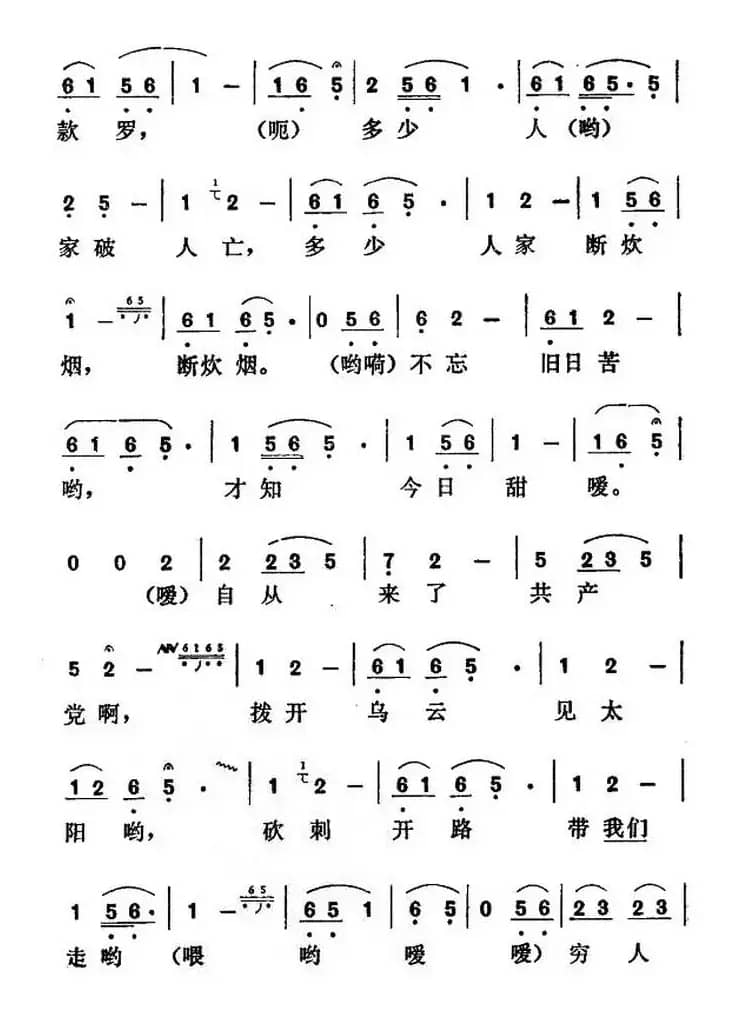 6 1 5 6 | 1 – | 1 6 5 | 2 5 6 1 · | 6 1 6 5 · 5 |
款 罗， （呃） 多 少 人（哟）
2 5 – | 1 2 – | 6 1 6 5 · | 1 2 – | 1 5 6 |
家 破 人 亡， 多 少 人 家 断 炊
1 – 6 5 | 6 1 6 5 · | 0 5 6 | 6 2 – | 6 1 2 – |
烟， 断炊 烟。 （哟嗬）不 忘 旧日 苦
6 1 6 5 · | 1 5 6 5 · | 1 5 6 | 1 – | 1 6 5 |
哟， 才 知 今 日 甜 嗳。
0 0 2 | 2 2 3 5 | 7 2 – | 5 2 3 5 |
（嗳） 自 从 来 了 共 产
5 2 – 6 1 6 5 | 1 2 – | 6 1 6 5 · | 1 2 – |
党 啊， 拨 开 乌 云 见 太
1 2 6 5 · | 1 2 – | 6 1 6 5 · | 1 2 – |
阳 哟， 砍 刺 开 路 带 我们
1 5 6 · | 1 – 6 5 | 6 5 1 | 6 5 | 0 5 6 | 2 3 2 3 |
走 哟 （喂 哟 嗳 嗳） 穷 人